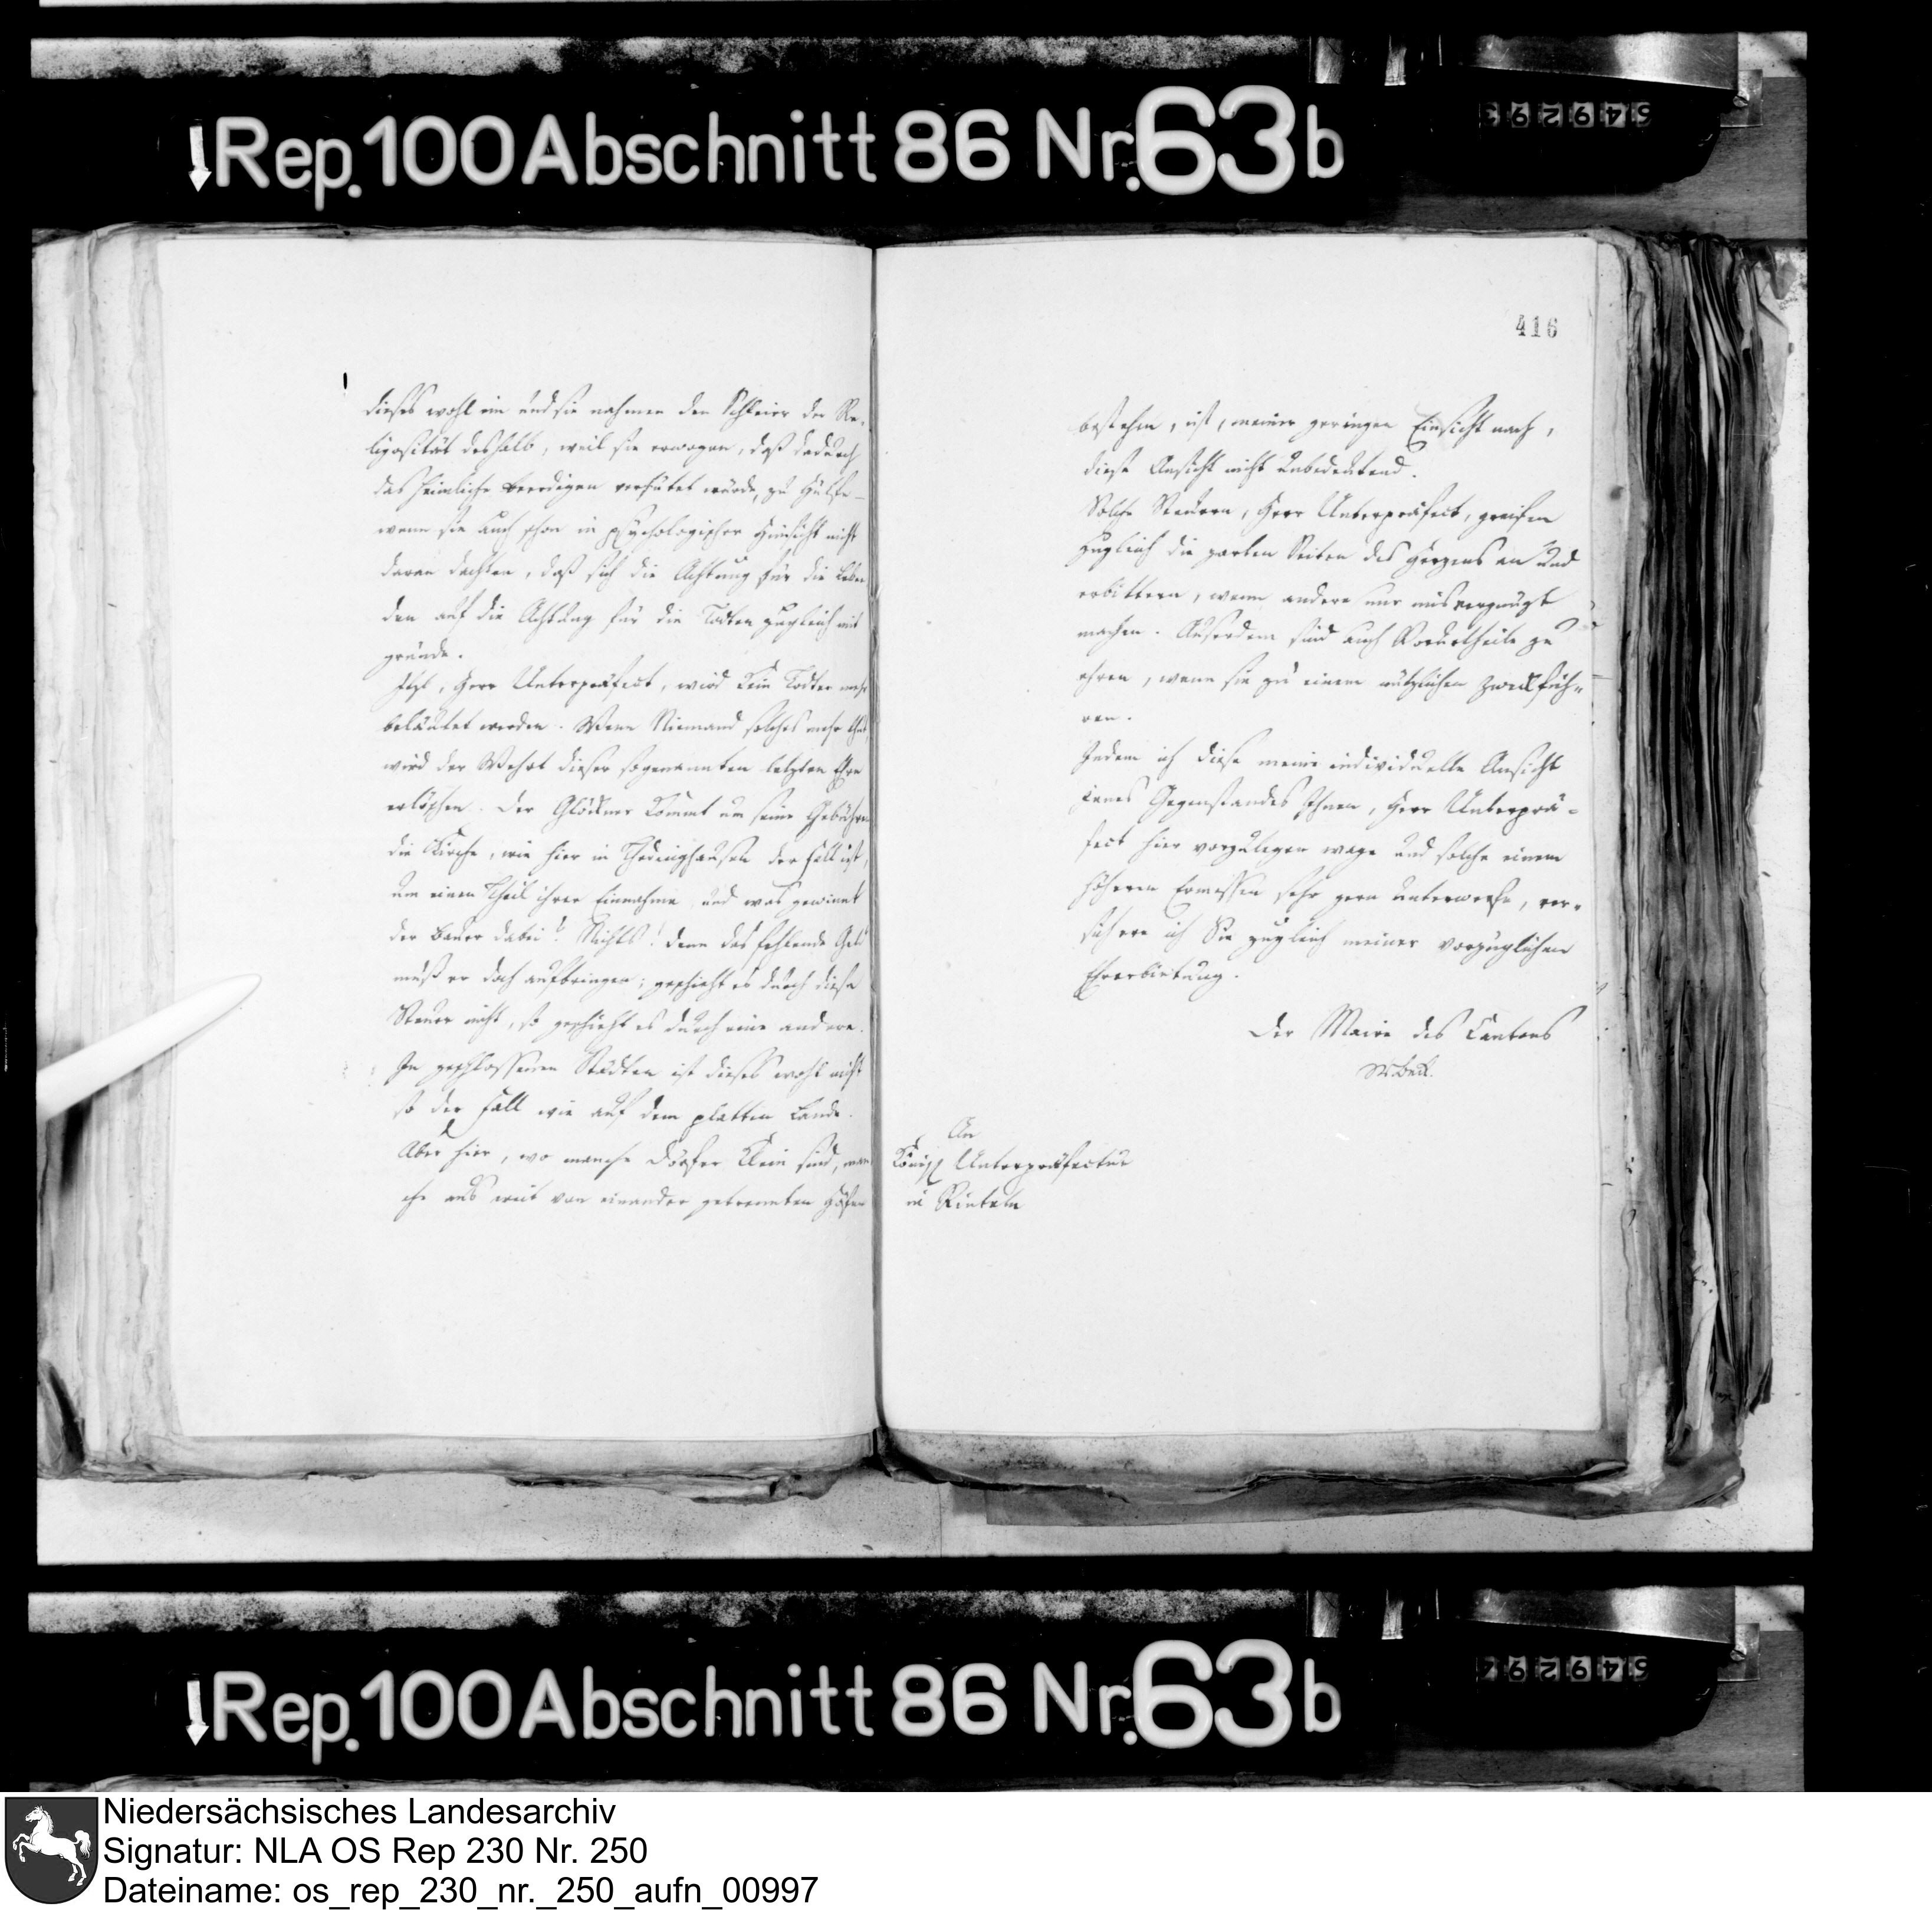 Rep. 100 Abschnitt 86 Nr. 63b
549293
dieses wohl ein und sie nahmen den Schleier der Re-
ligiosität deshalb, weil sie erwogen, daß dadurch
das heimliche beerdigen verhütet würde, zu Hülfe –
wenn sie auch schon in psychologischer Hinsicht nicht
daran dachten, daß sich die Achtung für die Leben
den auf die Achtung für die Todten zugleich mit
gründe.
Jetzt, Herr Unterpräfect, wird kein Todter mehr
beläutet werden. Wenn Niemand solches mehr thut,
wird der Wehrt dieser sogenannten letzten Ehre
erlöschen. Der Glöckner kommt um seine Gebühren
die Kirche, wie hier in Thedinghausen der Fall ist,
um einen Theil ihrer Einnahme, und was gewinnt
der Bauer dabei? Nichts! denn das fehlende Geld
muß er doch aufbringen; geschieht es durch diese
Steuer nicht, so geschieht es durch eine andere.
In geschlossenen Städten ist dieses wohl nicht
so der Fall wie auf dem platten Lande.
Aber hier, wo manche Dörfer klein sind, man
che aus weit von einander getrennten Höfen
416
bestehen, ist, meiner geringen Einsicht nach,
diese Ansicht nicht unbedeutend.
Solche Steuern, Herr Unterpräfect, greifen
zugleich die zarten Seiten des Herzens an und
erbittern, wenn andere nur misvergnügt
machen. Außerdem sind auch Vorurtheile zu
ehren, wenn sie zu einem nützlichen Zweck füh-
ren.
Indem ich diese meine individuelle Ansicht
jenes Gegenstandes Ihnen, Herr Unterprä-
fect hier vorzulegen wage und solche einem
höheren Ermessen sehr gern unterwerfe, ver-
sichere ich Sie zugleich meiner vorzüglichen
Ehrerbietung.
Der Maire des Cantons
An
Königl Unterpräfectur
in Rinteln
Rep. 100 Abschnitt 86 Nr. 63b
Niedersächsisches Landesarchiv
Signatur: NLA OS Rep 230 Nr. 250
Dateiname: os_rep_230_nr._250_aufn_00997